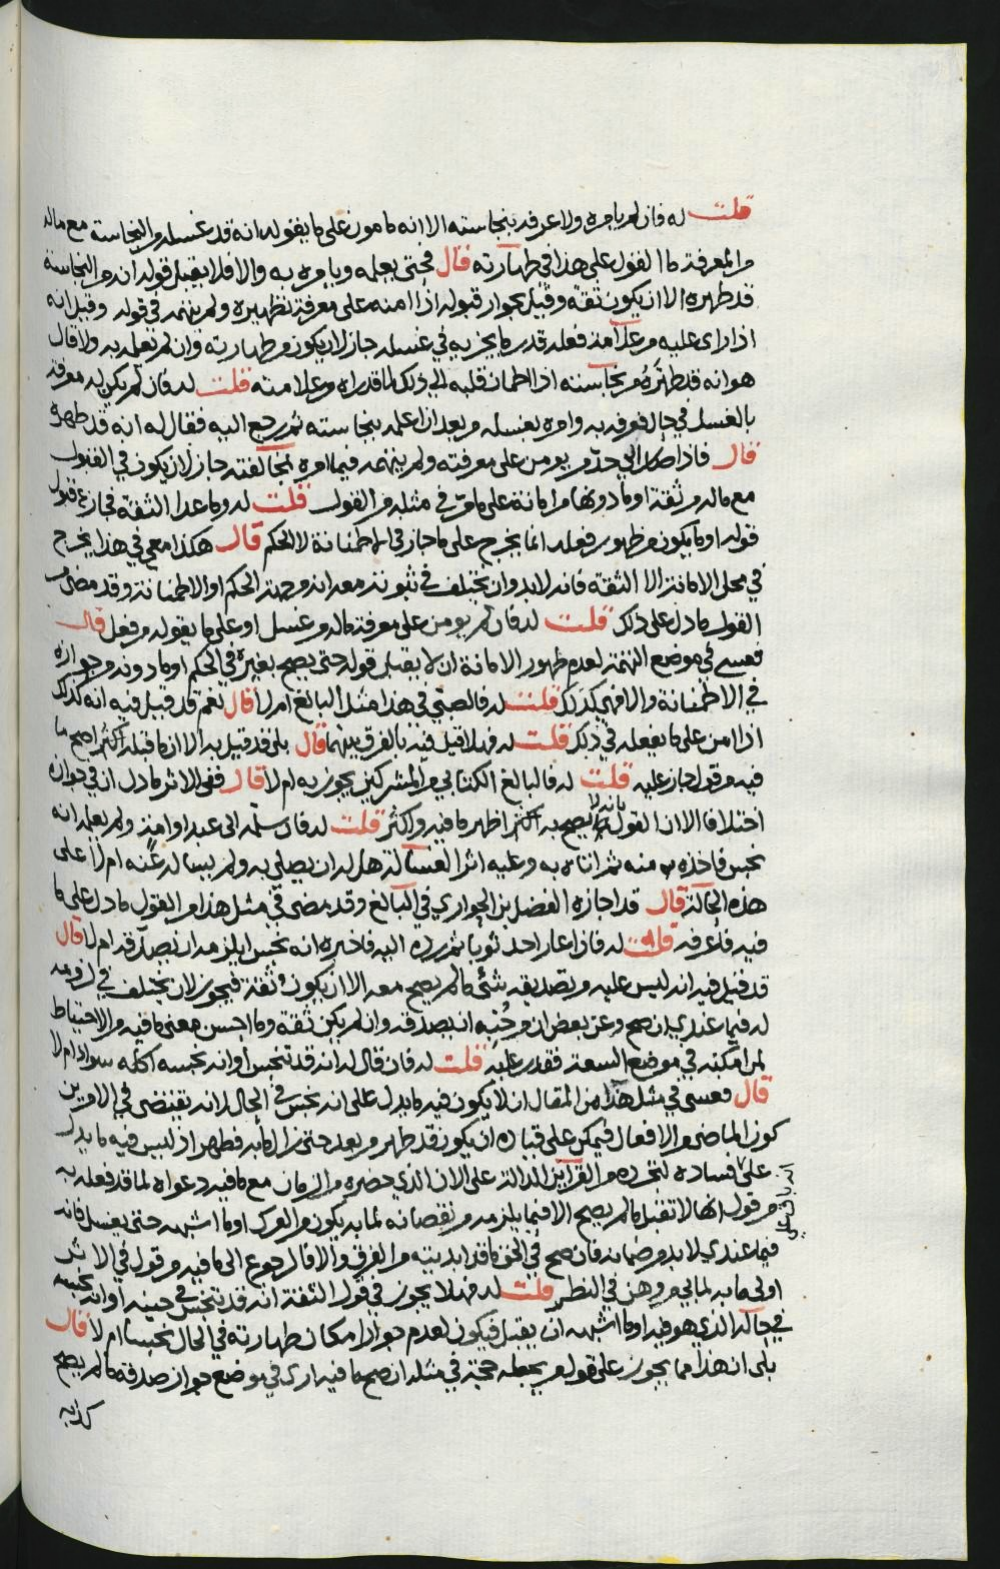 قلت له فان لم يامره ولا عرفه بنجاسته الا انه مامون على ما يقوله انه قد غسله من النجاسة مع ماله
من المعرفة ما القول على هذا في طهارته قال فحتى يعلمه ويامره به والا فلا يقبل قوله انه من النجاسة
قد طهره الا ان يكون ثقة وقيل بجواز قبوله اذا امنه على معرفة تطهيره ولم يتهمه في قوله وقيل انه
اذا راى عليه من علامة فعله قدر ما يجزيه في غسله جاز لان يكون من طهارته وان لم يعلمه به ولا قال
هو انه قد طهره من نجاسته اذا اطمان قلبه الى ذلك لما قد راه من علامته قلت له فان لم يكن له معرفة
بالغسل في حال فعرفه به وامره بغسله من بعد ان اعلمه بنجاسته ثم رجع اليه فقال له انه قد طهره
قال فاذا صار الى حد من يومن على معرفته ولم يتهمه فيما امره لمخالفته جاز لان يكون في القبول
مع ماله من ثقة او ما دونها من امانة على ما مر في مثله من القول قلت له وما عدا الثقة فجاز في قبول
قوله او ما يكون من ظهور فعله انما يخرج على ما جاز في الاطمئنانة لا الحكم قال هكذا معي في هذا يخرج
في محل الامانة الا الثقة فانه لا بد وان يختلف في ثبوته معه انه من جهة الحكم او الاطمئنانة وقد مضى من
القول ما دل على ذلك قلت له فان لم يومن على معرفة ماله من غسل او على ما يقوله من فعل قال
فعسى في موضع التهمة لعدم ظهور الامانة ان لا يقبل قوله حتى يصح بغيره في الحكم او ما دونه من جوازه
في الاطمئنانة والا فهي كذلك قلت له فالصبي في هذا مثل البالغ ام لا قال نعم قد قيل فيه انه كذلك
اذا امن على ما يفعله في ذلك قلت له فهلا قيل فيه بالفرق بينهما قال بلى قد قيل به الا ان ما قبله اكثر اصح ما
فيه من قول جاز عليه قلت له فالبالغ الكتابي من المشركين يجوز به ام لا قال ففي الاثر ما دل ان في جوازه
اختلافا الا ان القول بانه لا يصح به اكثر اظهر ما فيه واكثر قلت له فان سلمه الى عبد او امة ولم يعلمه انه
نجس فاخذه منه ثم اتاه به وعليه اثر الغسالة هل له ان يصلي به ولم يساله عنه ام لا على
هذه الحالة قال قد اجازه الفضل بن الحواري في البالغ وقد مضى في مثل هذا من القول ما دل على ما
فيه فدعرفه قلت له فان اعار احد ثوبا ثم رده اليه فاخبره انه نجس ايلزمه ان يصدقه ام لا قال
قد قيل فيه انه ليس عليه من تصديقه شئ ما لم يصح معه الا ان يكون ثقة فيجوز لان يختلف في لزومه
له فيما عندي ان صح وعن بعض ان وجبه ان يصدقه وان لم يكن ثقة وما احسن معنى ما فيه من الاحتياط
لمن امكنه في موضع السعة فقدر عليه قلت له فان قال له انه قد تنجس او انه نجسه اكله سواء ام لا
قال فعسى في مثل هذا من المقال ان لا يكون فيه ما يدل على انه نجس في الحال لانه يقتضي في الامرين
كون الماضي من الافعال فيمكن على قياده ان يكون قد طهر من بعد حتى زال ما به فطهر اذ ليس فيه ما يدل
على فساده لتجرده من القراين الدالة على الان الذي حضره من الزمان مع ما فيه دعواه لما قد فعله به
من قول انها لا تقبل ما لم يصح الا فيما يلزمه من نقصانه لما به يكون من العرك او ما اشبهه حتى يغسل فانه
فيما عندي لا بد من ضمانه فان صح في الحق ما قد ابديته من الفرق والا فالرجوع الى ما فيه من قول في الاثر
اولى ما به لما بي من وهن في النظر قلت له فهلا يجوز في قول الثقة انه قد تنجس في حينه او انه نجسه
في حاله الذي هو فيه او ما اشبهه ان يقبل فيكون لعدم جواز امكان طهارته في الحال نجسا ام لا قال
بلى ان هذا مما يجوز على قول من يجعله حجة في مثله ان صح ما فيه ارى في موضع جواز صدقه ما لم يصح
كذبه